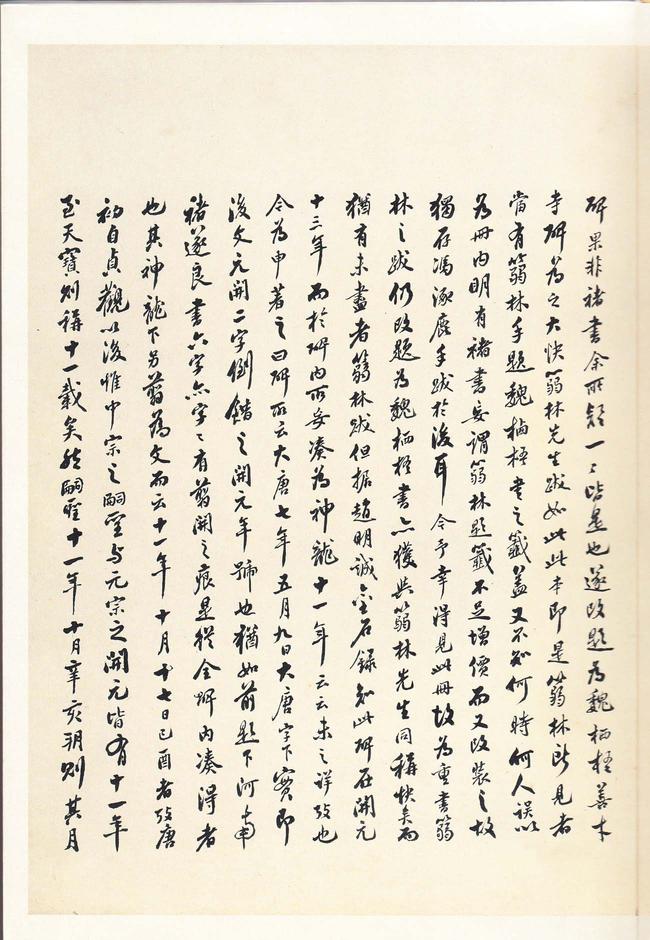 碑果非褚書余所疑一一皆是也遂改題為魏栖梧善才
寺碑為之大快蒻林先生跋如此此本即是蒻林所見者
當有蒻林手題魏栖梧書之籤蓋又不知何時何人誤以
為冊內明有褚書妄謂蒻林題籤不足增價而又改裝之故
獨存馮涿鹿手跋於後耳今予幸得見此冊故為重書蒻
林之跋仍改題為魏栖梧書亦獲與蒻林先生同稱快矣而
猶有未盡者蒻林跋但據趙明誠金石錄知此碑在開元
十三年而於碑內所妄湊為神龍十一年云云未之詳攷也
今為申著之曰碑所云大唐七年五月九日大唐字下實即
後文元開二字倒錯之開元年號也猶如前題下河南
褚遂良書六字亦字字有剪開之痕是從全碑內湊得者
也其神龍下另剪為文而云十一年十月十七日己酉者攷唐
初自貞觀以後惟中宗之嗣聖與元宗之開元皆有十一年
至天寶則稱十一載矣然嗣聖十一年十月辛亥朔則其月